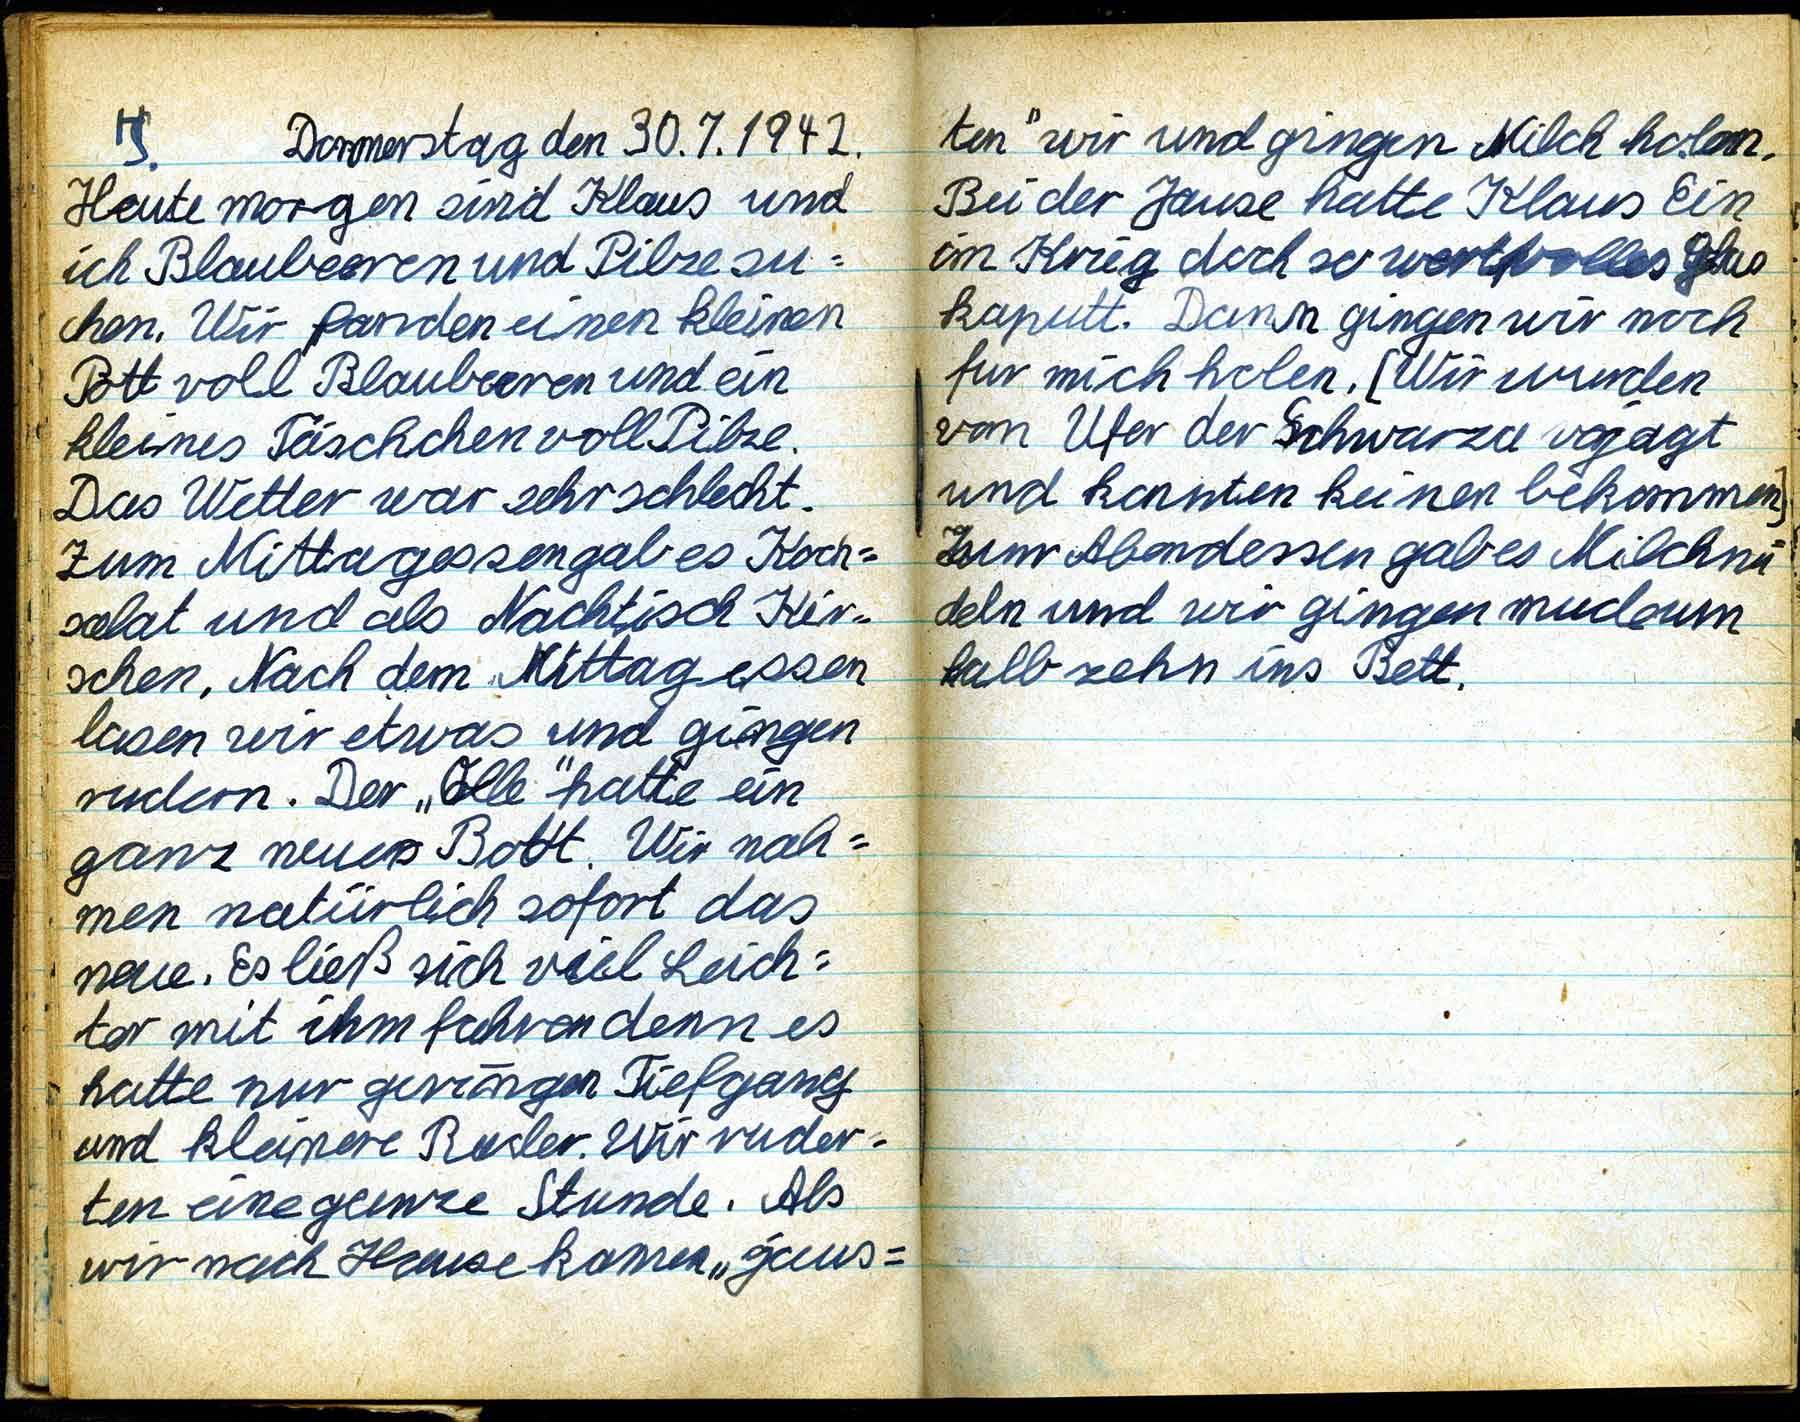 Donnerstag den 30.7.1942.
Heute morgen sind Klaus und
ich Blaubeeren und Pilze su=
chen. Wir fanden einen kleinen
Pott voll Blaubeeren und ein
kleines Täschchen voll Pilze.
Das Wetter war sehr schlecht.
Zum Mittagessen gab es Koch=
salat und als Nachtisch Kir=
schen. Nach dem Mittagessen
lasen wir etwas und gingen
rudern. Der „Olle" hatte ein
ganz neues Bott. Wir nah=
men natürlich sofort das
neue. Es ließ sich viel Leich=
ter mit ihm fahren denn es
hatte nur geringen Tiefgang
und kleinere Ruder. Wir ruder=
ten eine ganze Stunde. Als
wir nach Hause kamen „jaus=
ten" wir und gingen Milch holen.
Bei der Jause hatte Klaus Ein
im Krieg doch so wertvolles Glas
kaputt. Dann gingen wir noch
fur mich holen. [Wir wurden
von Ufer der Schwarza vejagt
und konnten keinen bekommen]
Zum Abendessen gab es Milchnu=
deln und wir gingen mude um
halb zehn ins Bett.